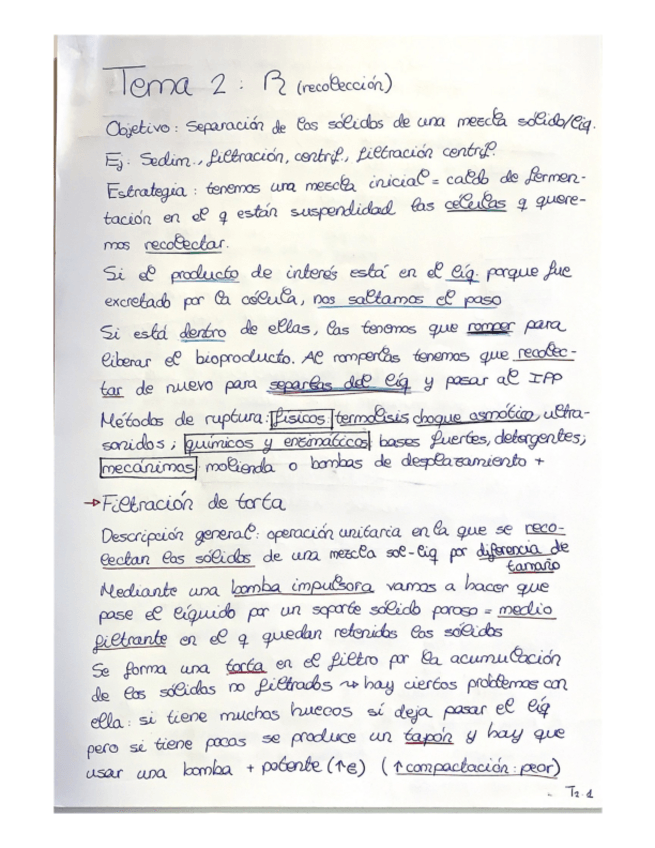 Tema 2: R (recolección)
Objetivo: Separación de los sólidos de una mezcla sólido/líq.
Ej: Sedim., filtración, centrif., filtración centrif.
Estrategia: tenemos una mezcla inicial = caldo de fermen-
tación en el q están suspendidad las células q quere-
mos recolectar.
Si el producto de interés está en el líq. porque fue
excretado por la célula, nos saltamos el paso
Si está dentro de ellas, las tenemos que romper para
liberar el bioproducto. Al romperlas tenemos que recolec-
tar de nuevo para separlas del líq y pasar al IPP
Métodos de ruptura: físicos: termolisis choque osmótico, ultra-
sonidos; químicos y enzimáticos bases fuertes, detergentes;
mecánimos molienda o bombas de desplazamiento +
→Filtración de torta
Descripción general: operación unitaria en la que se reco-
lectan los sólidos de una mezcla sol-liq por diferencia de
tamaño
Mediante una bomba impulsora vamos a hacer que
pase el líquido por un soporte sólido poroso = medio
filtrante en el q quedan retenidos los sólidos
Se forma una torta en el filtro por la acumulación
de los sólidos no filtrados ↝ hay ciertos problemas con
ella: si tiene muchos huecos sí deja pasar el líq
pero si tiene pocos se produce un tapón y hay que
usar una bomba + potente (↑€) (↑compactación: peor)
T2.1